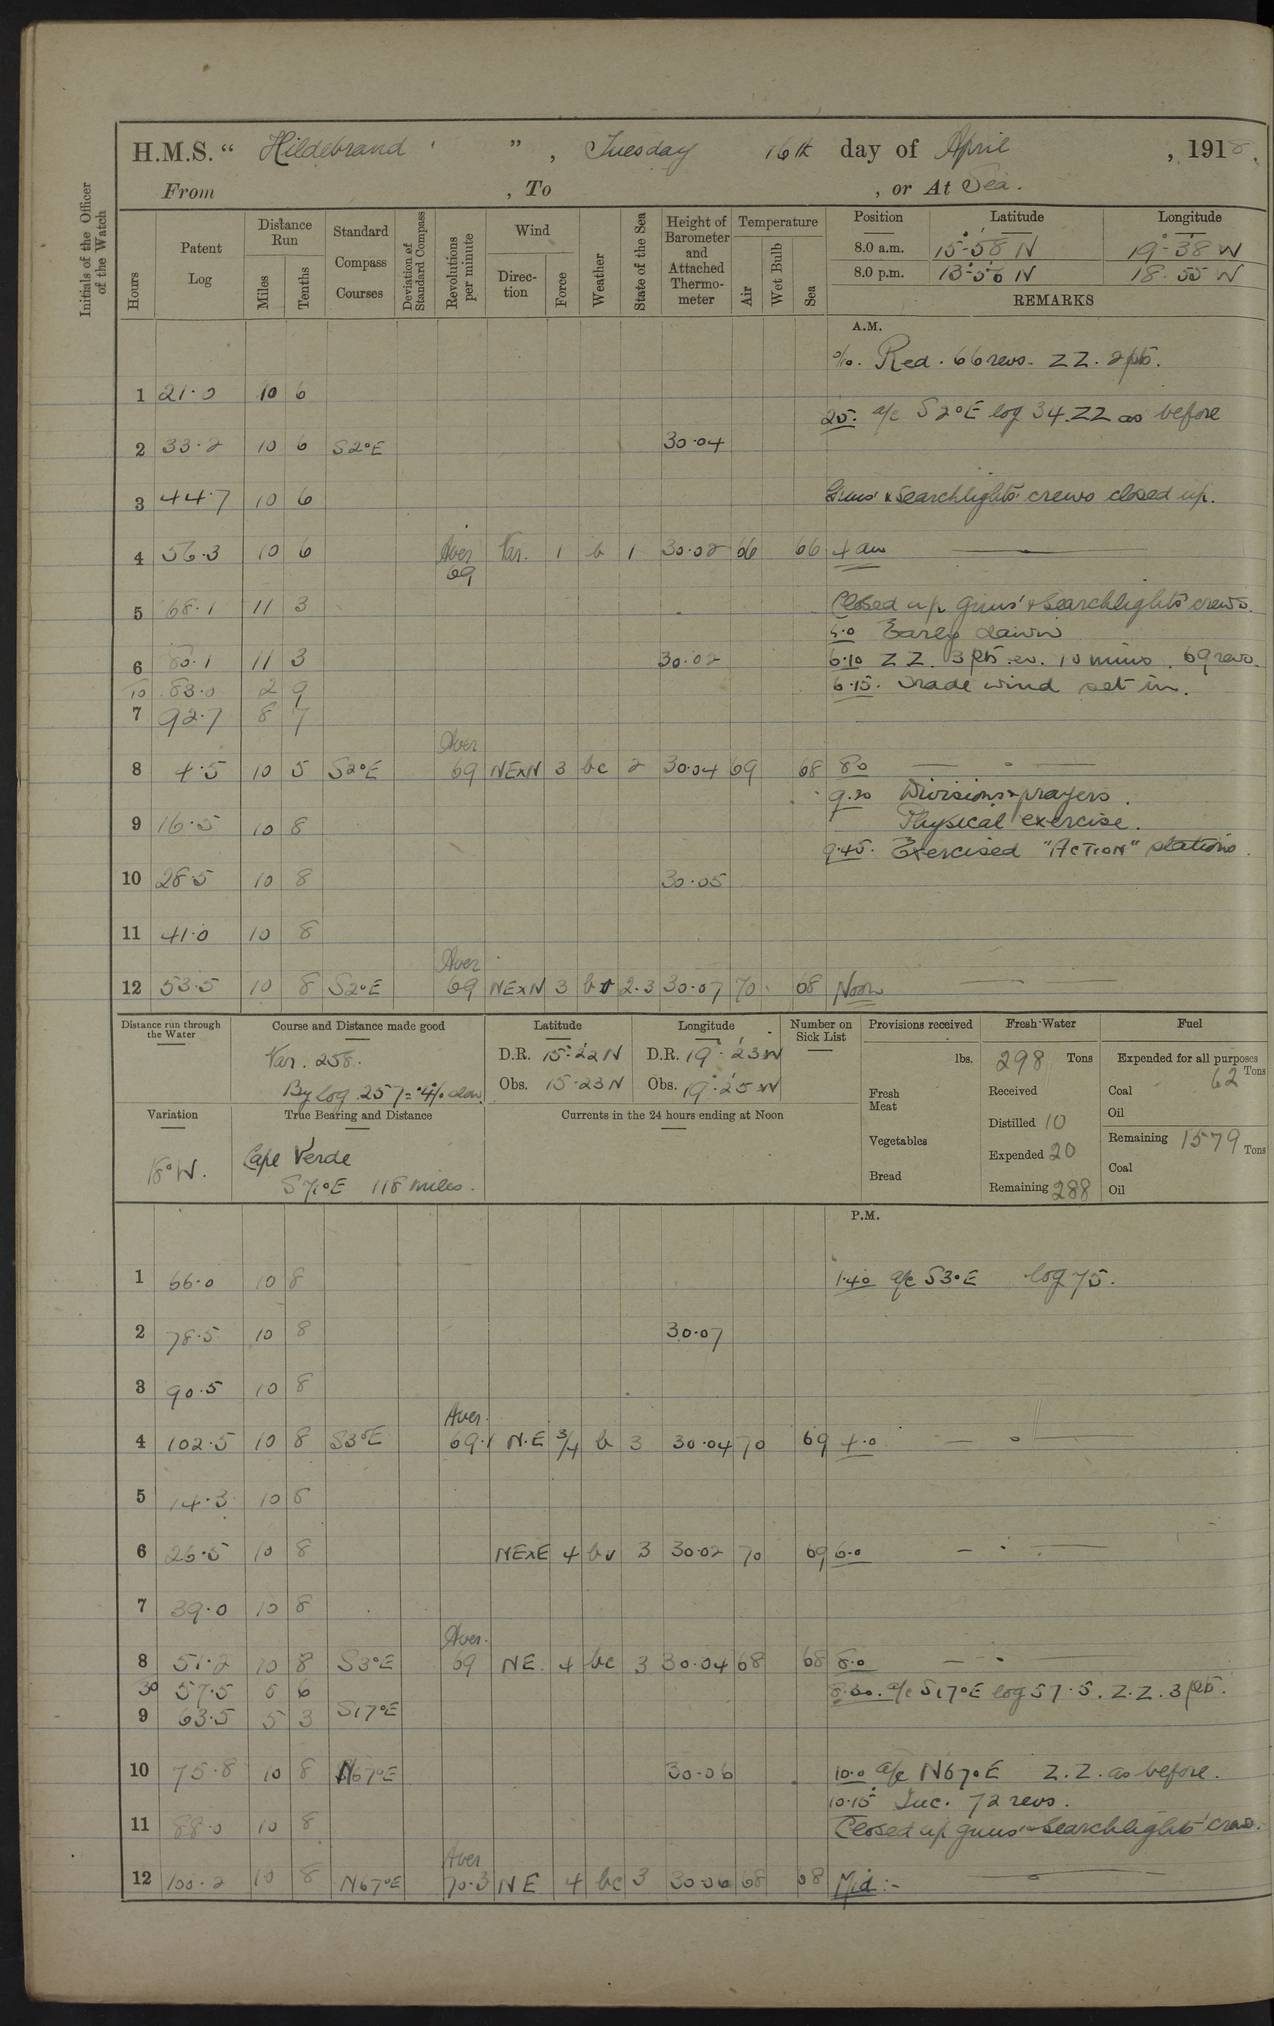 H.M.S. “ Hildebrand ” , Tuesday 16th day of April , 1918.
From , To , or At Sea.
Initials of the Officer of the Watch
Hours
Patent Log
Distance Run
Miles
Tenths
Standard Compass Courses
Deviation of Standard Compass
Revolutions per minute
Wind
Direction
Force
Weather
State of the Sea
Height of Barometer and Attached Thermometer
Temperature
Air
Wet Bulb
Sea
Position Latitude Longitude
8.0 a.m. 15°-58' N 19°-38' W
8.0 p.m. 13°-56' N 18-55 W
REMARKS
A.M.
0/10. Red. 66 revs. ZZ. 2 pts.
1 21.0 10 6
25. a/c S2°E log 34. ZZ as before
2 33.2 10 6 S2°E 30.04
3 44.7 10 6 Guns' & Searchlights' crews closed up.
4 56.3 10 6 Aver 69 Var. 1 b 1 30.02 66 66 4 am
5 68.1 11 3 Closed up Guns' & Searchlights' crews.
5.0 Early dawn
6 80.1 11 3 30.02 6.10 ZZ. 3 pts. ev. 10 mins. 69 revs.
10 83.0 2 9 6.15. Trade wind set in.
7 92.7 8 7
8 4.5 10 5 S2°E Aver 69 NExN 3 bc 2 30.04 69 68 8.0
9.20 Divisions & prayers.
9 16.5 10 8 Physical exercise.
9.45. Exercised "ACTION" stations.
10 28.5 10 8 30.05
11 41.0 10 8
12 53.5 10 8 S2°E Aver 69 NExN 3 2.3 30.07 70. 68 Noon
Distance run through the Water
Course and Distance made good
Var. 258.
By Log 257 = .4% slow
Latitude
D.R. 15°-22' N
Obs. 15-23 N
Longitude
D.R. 19°-23' W
Obs. 19°-25' W
Number on Sick List
Variation
18°W.
True Bearing and Distance
Cape Verde
S71°E 118 miles.
Currents in the 24 hours ending at Noon
Provisions received
lbs.
Fresh Meat
Vegetables
Bread
Fresh Water
298 Tons
Received
Distilled 10
Expended 20
Remaining 288
Fuel
Expended for all purposes
62 Tons
Coal
Oil
Remaining 1579 Tons
Coal
Oil
P.M.
1 66.0 10 8 1.40 a/c S3°E log 75.
2 78.5 10 8 30.07
3 90.5 10 8
4 102.5 10 8 S3°E Aver. 69.1 N.E 3/4 b 3 30.04 70 69 4.0
5 14.3 10 8
6 26.5 10 8 NExE 4 bv 3 30.02 70 69 6.0
7 39.0 10 8
8 51.2 10 8 S3°E Aver. 69 NE. 4 bc 3 30.04 68 68 8.0
30 57.5 5 6 8.30. a/c S17°E log 57.5. Z.Z. 3 pts.
9 63.5 5 3 S17°E
10 75.8 10 8 N67°E 30.06 10.0 a/c N67°E Z.Z. as before.
10.15 Inc. 72 revs.
11 88.0 10 8 Closed up guns' & Searchlights' crews.
12 100.2 10 8 N67°E Aver 70.3 NE 4 bc 3 30.06 68 68 Mid:-